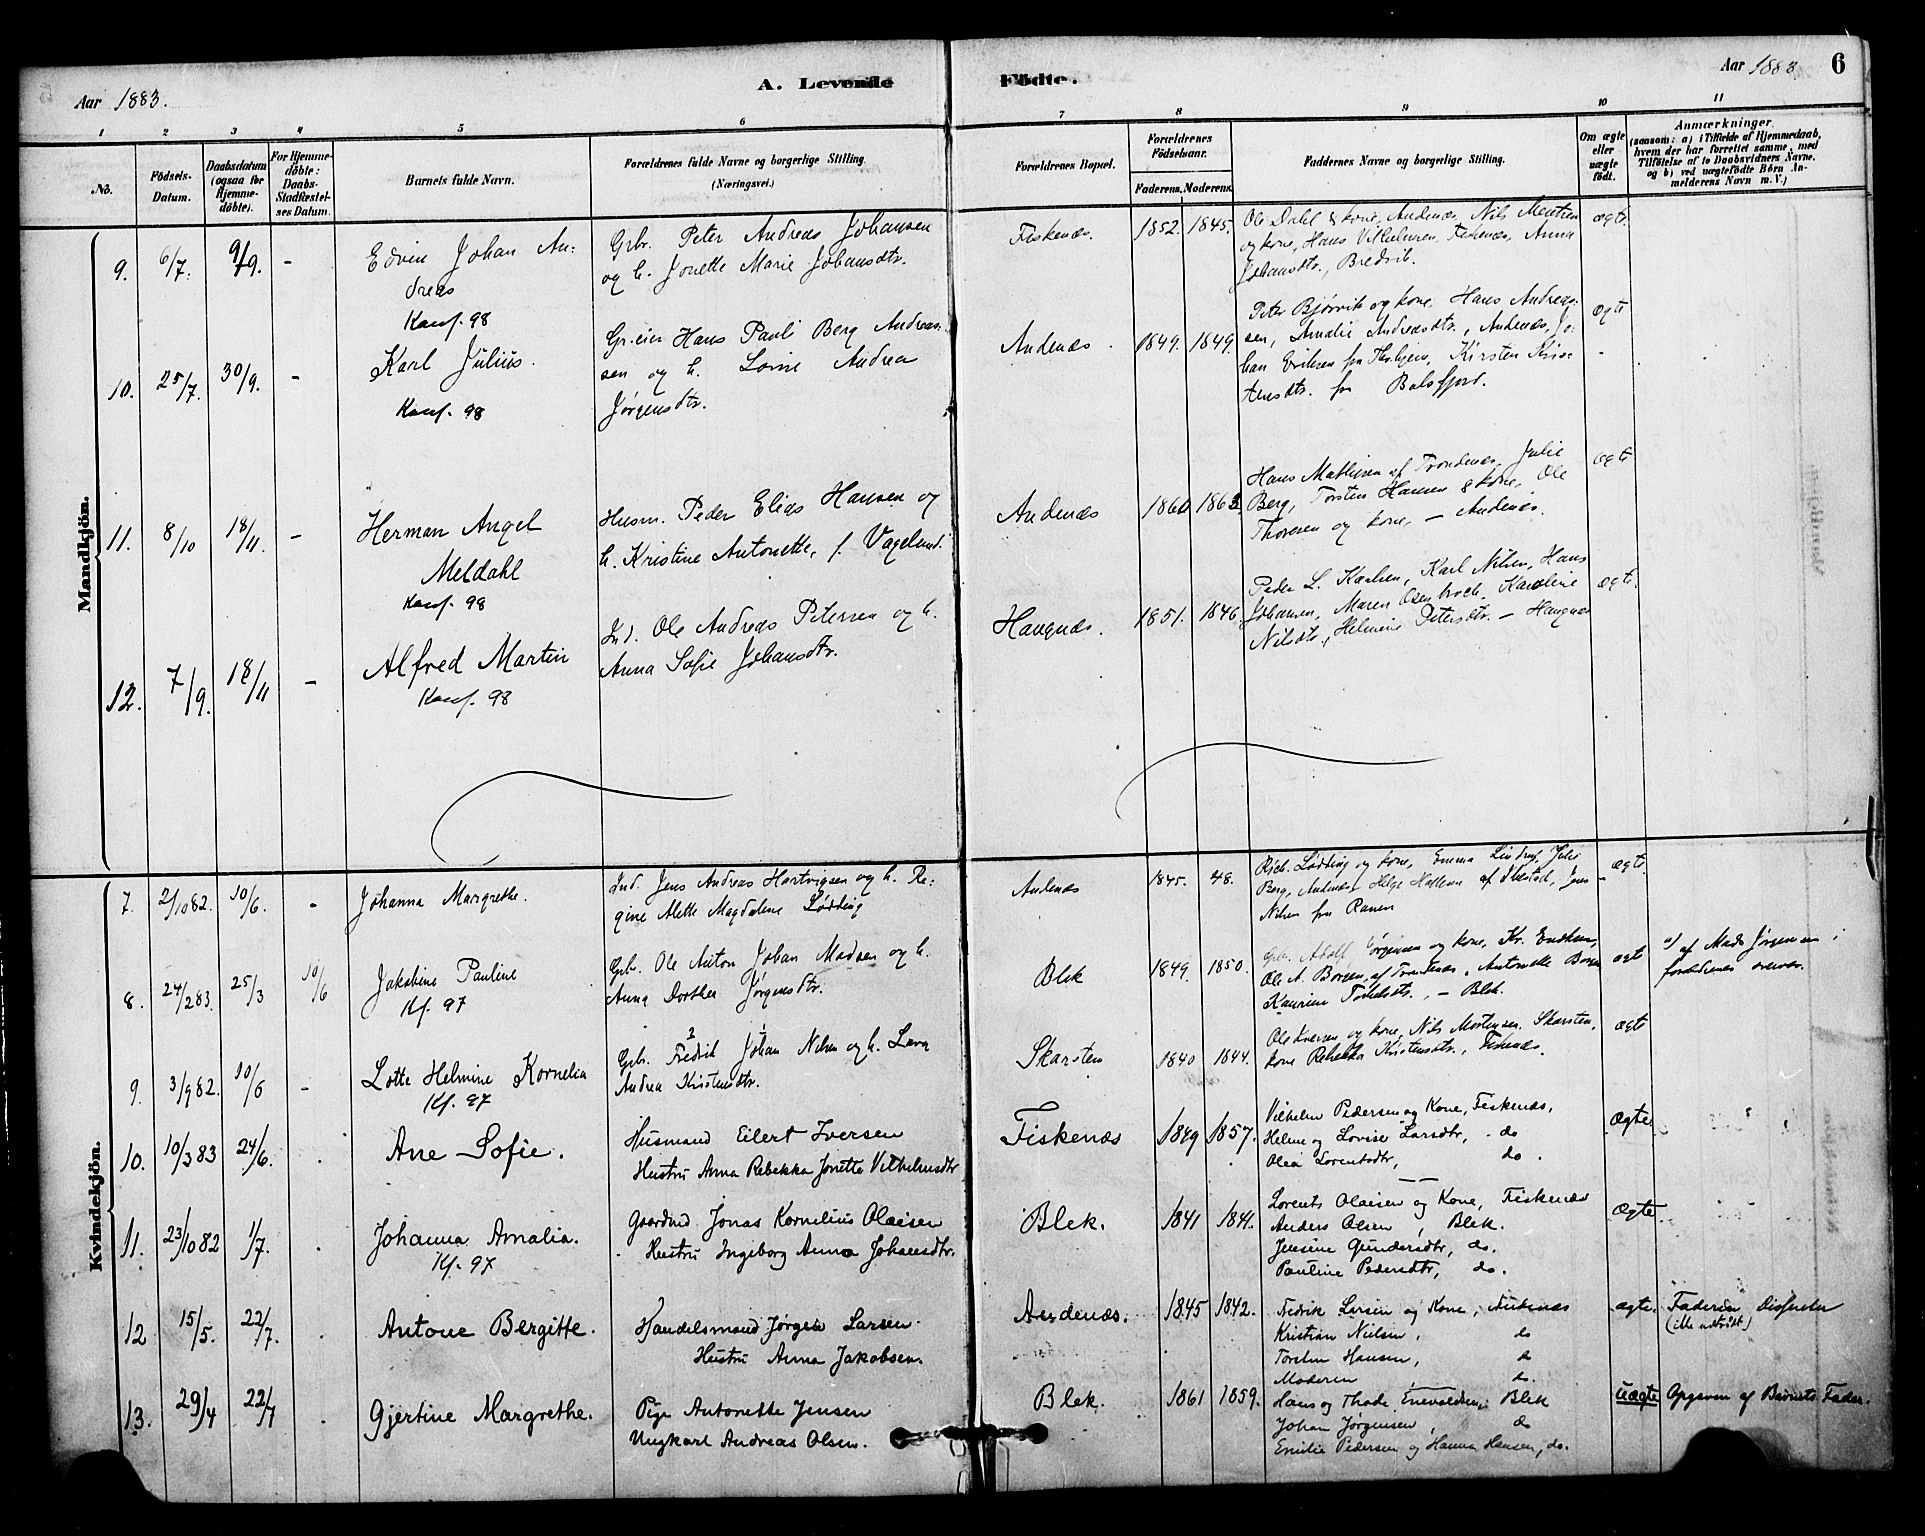 Aar 1883.
A. Levende Födte.
Aar 1883.
6
1 2 3 4 5 6 7 8 9 10 11
No.
Födsels-Datum.
Daabsdatum (ogsaa for Hjemme-döbte).
For Hjemme-döbte: Daabs-Stadfæstel-ses Datum.
Barnets fulde Navn.
Forældrenes fulde Navne og borgerlige Stilling.
(Næringsvei.)
Forældrenes Bopæl.
Forældrenes Födselsaar.
Faderens. Moderens.
Faddernes Navne og borgerlige Stilling.
Om ægte eller uægte födt.
Anmærkninger.
(saasom: a) i Tilfælde af Hjemmedaab,
hvem der har forrettet samme, med
Tilföielse af to Daabsvidners Navne,
og b) ved uægtefödte Börn An-
melderens Navn m. V.)
Mandkjön.
9. 6/7. 9/9. - Edvin Johan An-
dreas
Konf. 98
Grbr. Peter Andreas Johansen
og h. Jonette Marie Johansdtr.
Fiskenæs. 1852. 1845.
Ole Dahl & kone, Andenæs, Nils
og kone, Hans Vilhelmsen, Fiskenæs, Anna
Johansdtr., Bredvik.
ægte
10. 25/7. 30/9. - Karl Julius.
Konf. 98
Gr.eier Hans Pauli Berg Andreas-
sen og h. Andrea
Jørgensdtr.
Andenæs. 1849. 1849.
Peter Bjørvik og kone, Hans Andreas-
sen, Amalie Andreasdtr., Andenæs, Jo-
han Eriksen fra Kirsten Kris-
tensdtr. fra Balsfjord.
ægte
11. 8/10 18/11. - Herman Angel
Meldahl
Konf. 98
Husm. Peder Elias Hansen og
h. Kristine Antonette, f. Vagelund.
Andenæs 1860 1863.
Hans Mathisen af Trondenæs, Julie
Berg, Torsten Hansen & kone, Ole
Thoresen og kone, - Andenæs.
ægte
12. 7/9. 18/11 - Alfred Martin
Konf. 98
Ind. Ole Andreas Petersen og h.
Anna Sofie Johansdtr.
Haugnæs. 1851. 1846
Peder L. Karlsen, Karl Nilsen, Hans
Johansen, Maren Karoline
Nilsdtr, Helmine Petersdtr. - Haugnæs
ægte.
Kvindekjön.
7. 2/10 82. 10/6. - Johanna Margrethe.
Ind. Jens Andreas Hartvigsen og h. Re-
gine Alette Magdalene Lødding
Andenæs 1845. 48.
Rich. Lødding og kone, Emma Lindrup, Julie
Berg, Andenæs, Helge af Ibestad, Jens
Nilsen fra Ranen
ægte
8. 24/2 83. 25/3 10/6 Jakobine Pauline
Kf. 97
Grb. Ole Anton Johan Madsen og h.
Anna Dorthea Jørgensdtr.
Blek 1849. 1850.
Grb. Adolf Jørgensen og kone, Kr. Endresen,
Ole A. Borgen, af Trondenæs, Antonette Borgen
Kaurine - Blek.
ægt
a) af Mads Jørgensen i
forældrenes overvær.
9. 3/9 82. 10/6 - Lotte Helmine Kornelia
Kf. 97
Grb. Fredrik Johan Nilsen og h. Lava
Andrea Kristensdtr.
Skarsten 1840 1844.
Ole Iversen og kone, Nils Mortensen, Skarsten,
kone Rebekka Kristensdtr., Fiskenæs.
ægt
10. 10/3 83 24/6. . Ane Sofie.
Husmand Eilert Iversen
Hustru Anna Rebekka Jonette Vilhelmsdtr
Fiskenæs 1849 1857.
Vilhelm Pedersen og Kone, Fiskenæs,
Helene og Lovise Larsdtr, do
Olea Lorentsdtr, do.
Ægte
11. 23/10 82 1/7. . Johanna Amalia.
Kf. 97
Gaardmd Jonas Kornelius Olaisen
Hustru Ingeborg Anna Johansdtr.
Blek. 1841 1841.
Lorents Olaisen og Kone, Fiskenæs
Anders Olsen, Blek.
Jensine Gundersdtr, do.
Pauline Pedersdtr, do.
Ægte.
12 15/5. 22/7. . Antone Bergitte.
Handelsmand Jørgen Larsen
Hustru Anna Jakobsen.
Andenæs. 1845 1842.
Fredrik Larsen og Kone, Andenæs
Kristian Nielsen, do
Torsten Hansen, do
Moderen do.
ægte. Faderen Dissenter
(ikke udtrådt)
13. 29/4 22/7 . Gjertine Margrethe.
Pige Antonette Jensen
Ungkarl Andreas Olsen.
Blek. 1861 1859.
Hans og Thode Enevoldsen, Blek
Johan Jørgensen, do
Emilie Pedersen og Hanna Hansen, do.
uægte Opgaven af Barnets Fader.